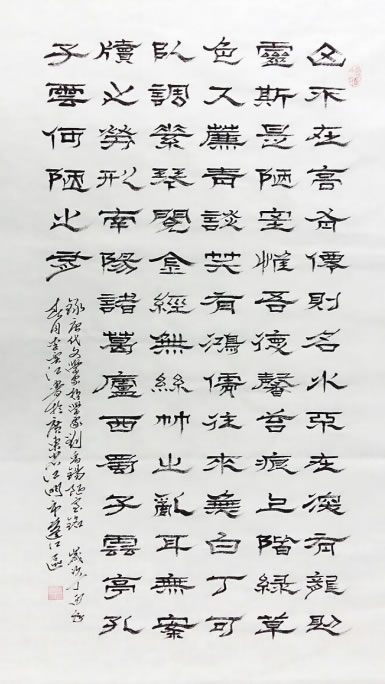 山不在高有僊則名水不在深有龍則
靈斯是陋室惟吾德馨苔痕上階緑草
色入簾青談笑有鴻儒往來無白丁可
以調素琴閲金經無絲竹之亂耳無案
牘之勞形南陽諸葛廬西蜀子雲亭孔
子雲何陋之有
錄唐代文學家哲學家劉禹錫陋室銘 歲次丁酉
春月江書於廣東江門市蓬江區